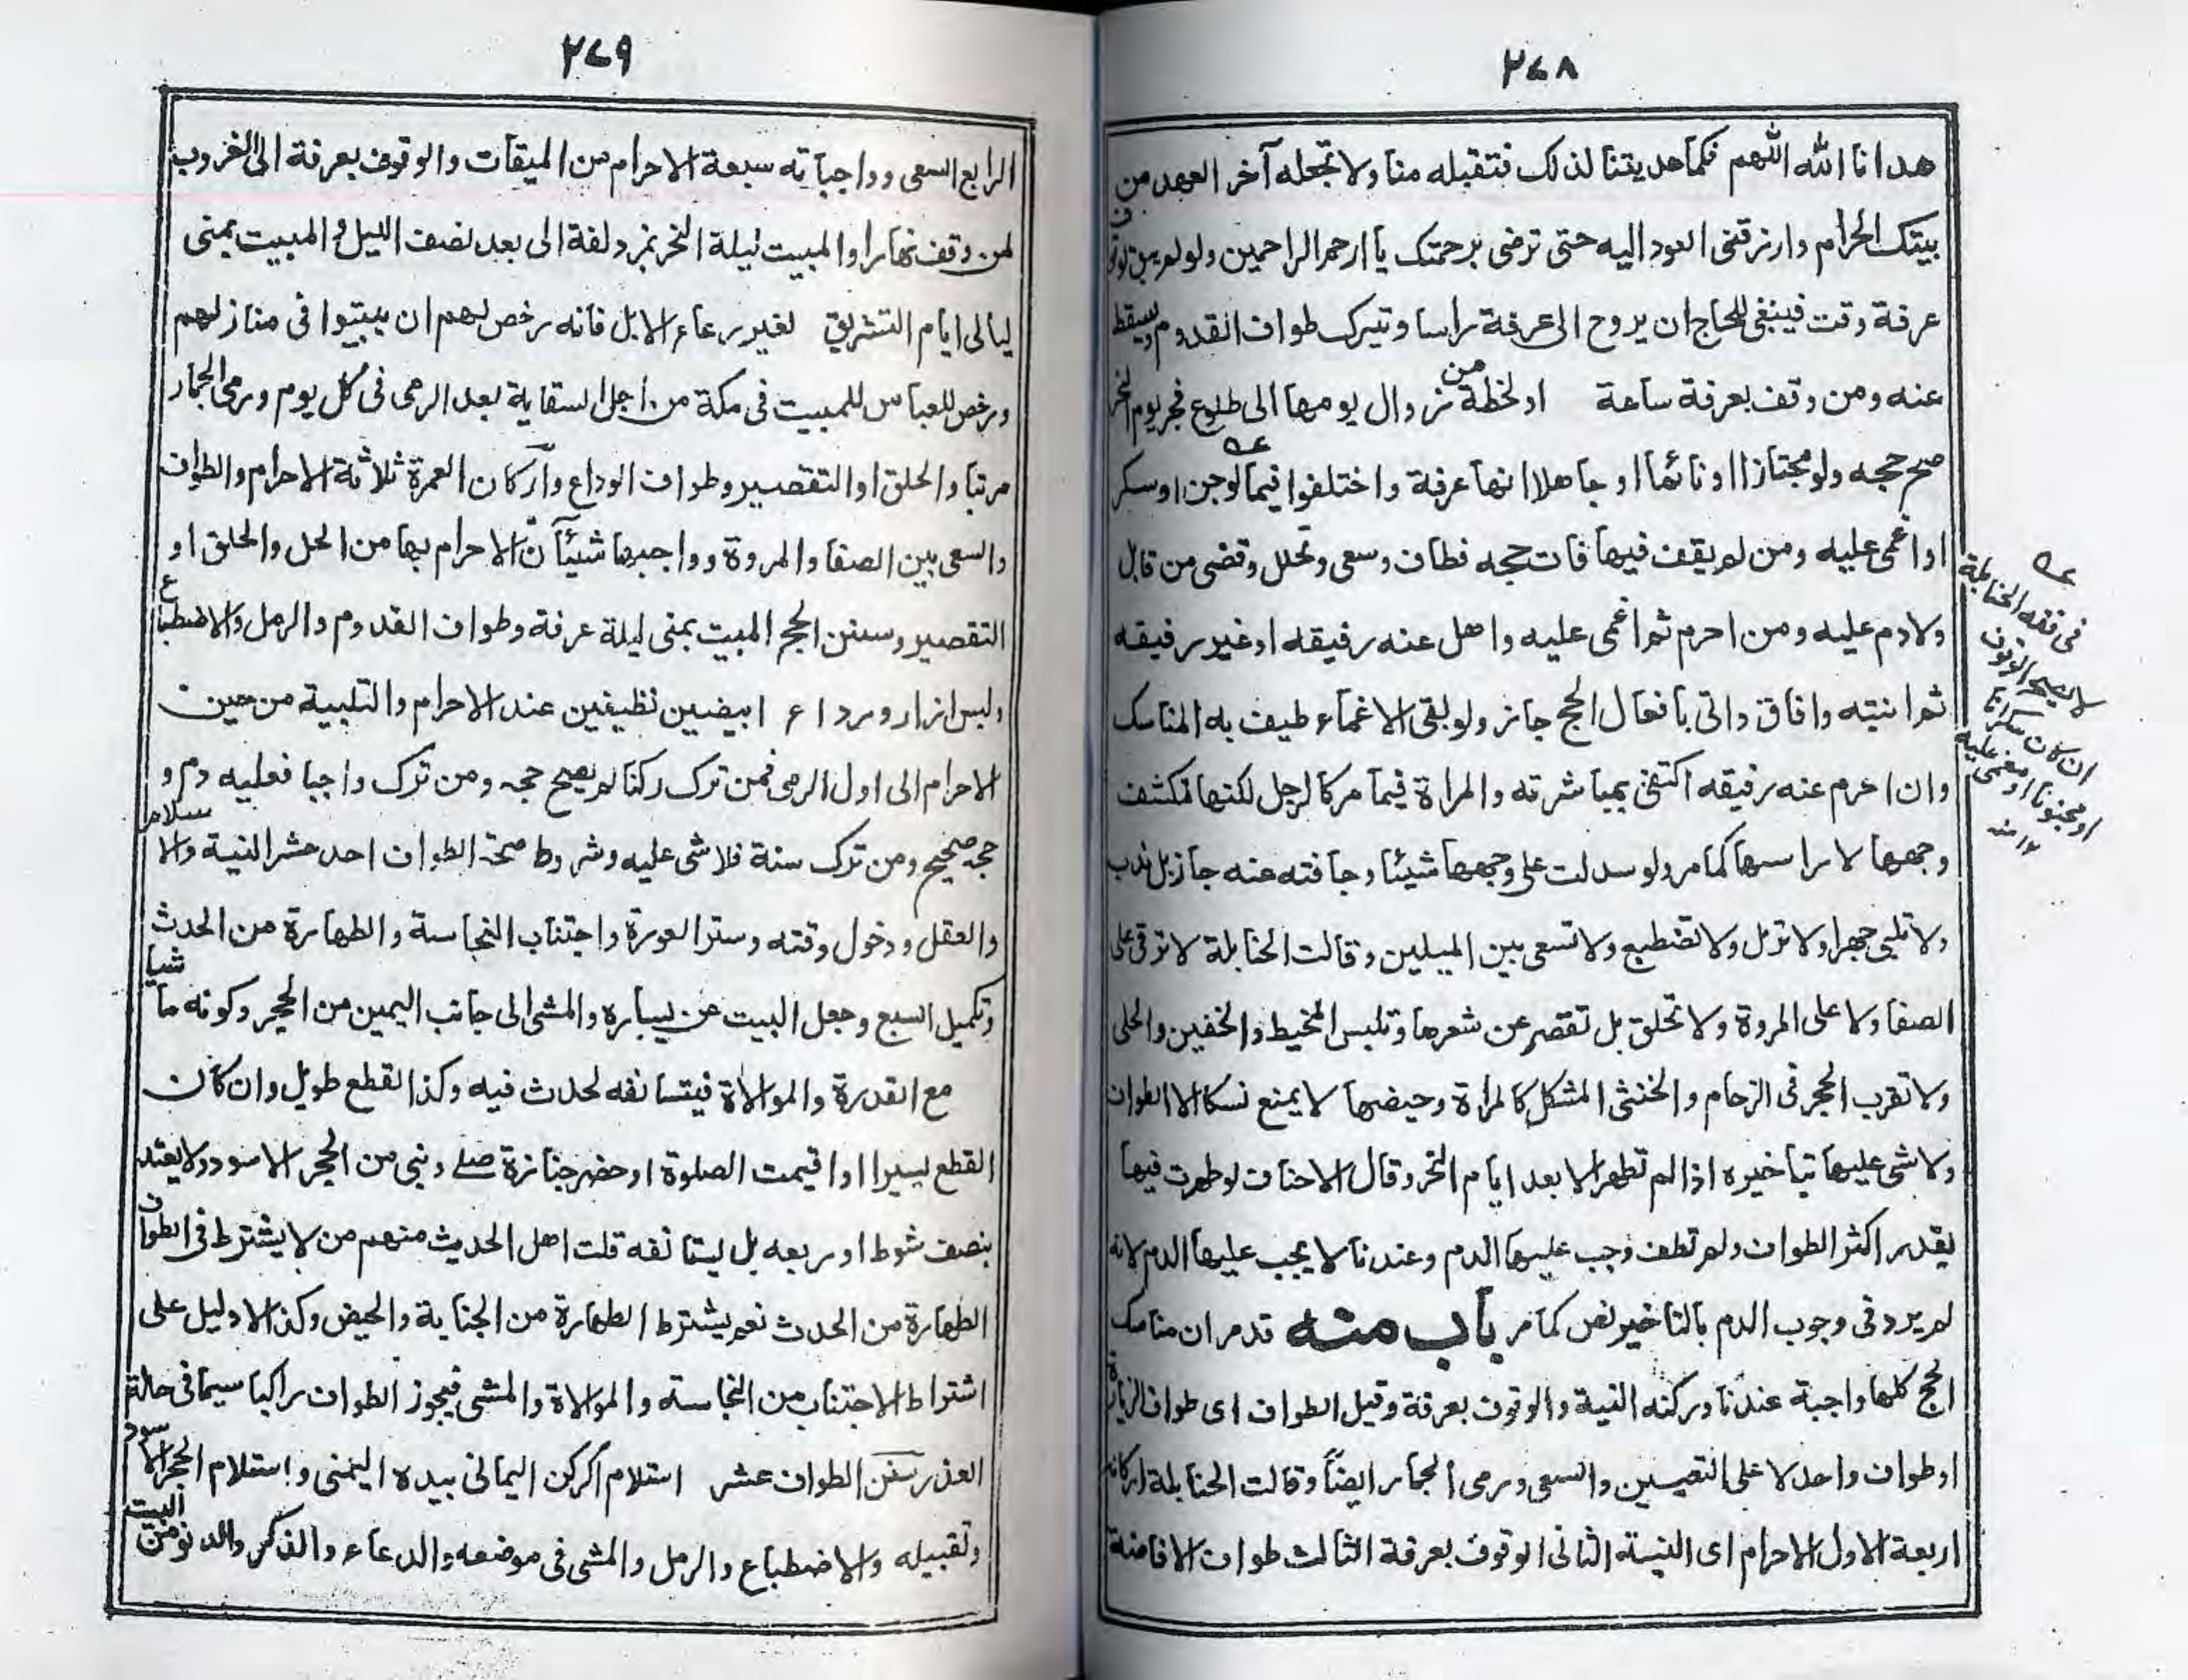 ٢٧٨
هدانا الله اللهم فكما هديتنا لذلك فتقبله منا ولا تجعله آخر العهد من
بيتك الحرام وارزقنى العود اليه حتى ترضى برحمتك يا ارحم الراحمين ولو لم يبق لوقوف
عرفة وقت فينبغى للحاج ان يروح الى عرفة راسا وتيرك طواف القدوم ويسقط
عنه ومن وقف بعرفة ساعة او لحظة من زوال يومها الى طلوع فجر يوم النحر
صح حجه ولو مجتازا او نائما او جاهلا انها عرفة واختلفوا فيما لوجن او سكر
او اغمى عليه ومن لم يقف فيها فات حجه فطاف وسعى وتحلل وقضى من قابل
ولا دم عليه ومن احرم ثم اغمى عليه واهل عنه رفيقه او غير رفيقه
ثم انتبه وافاق واتى بافعال الحج جاز ولو بقى الاغماء طيف به المناسك
وان احرم عنه رفيقه اكتفى بمباشرته والمراة فيما مر كالرجل لكنها تكشف
وجهها لا راسها كما مر ولو سدلت على وجهها شيئا وجافته عنه جاز بل ندب
ولا تلبى جهرا ولا ترمل ولا تضطبع ولا تسعى بين الميلين وقالت الحنابلة لا ترقى على
الصفا ولا على المروة ولا تحلق بل تقصر عن شعرها وتلبس المخيط والخفين والحلى
ولا تقرب الحجر فى الزحام والخنثى المشكل كالمراة وحيضها لا يمنع نسكا الا الطواف
ولا شى عليها بتاخيره اذا لم تطهر الا بعد ايام النحر وقال الاحناف لو طهرت فيها
بقدر اكثر الطواف ولم تطف وجب عليها الدم وعندنا لا يجب عليها الدم لانه
لم يرد فى وجوب الدم بالتاخير نص كما مر باب منه قد مر ان مناسك
الحج كلها واجبة عندنا وركنه النية والوقوف بعرفة وقيل الطواف اى طواف الزيارة
او طواف واحد لا على التعيين والسعى ورمى الجمار ايضاً وقالت الحنابلة اركانه
اربعة الاول الاحرام اى النية الثانى الوقوف بعرفة الثالث طواف الافاضة
عه
فى فقه الحنابلة
لا يصح الوقوف
ان كان سكرانا
او مجنونا او مغمى عليه
١٢ منه
٢٧٩
الرابع السعى وواجباته سبعة الاحرام من الميقات والوقوف بعرفة الى الغروب
لمن وقف نهارا والمبيت ليلة النحر بمزدلفة الى بعد نصف الليل والمبيت بمنى
ليالى ايام التشريق لغير رعاء الابل فانه رخص لهم ان يبيتوا فى منازلهم
ورخص للعباس للمبيت فى مكة من اجل السقاية بعد الرمى فى كل يوم ورمى الجمار
مرتبا والحلق او التقصير وطواف الوداع واركان العمرة ثلاثة الاحرام والطواف
والسعى بين الصفا والمروة وواجبها شيئآن الاحرام بها من الحل والحلق او
التقصير وسنن الحج المبيت بمنى ليلة عرفة وطواف القدوم والرمل والاضطباع
ولبس ازار ورداء ابيضين نظيفين عند الاحرام والتلبية من حين
الاحرام الى اول الرمى فمن ترك ركنا لم يصح حجه ومن ترك واجبا فعليه دم و
حجه صحيح ومن ترك سنة فلا شى عليه وشروط صحة الطواف احد عشر النية والاسلام
والعقل ودخول وقته وستر العورة واجتناب النجاسة والطهارة من الحدث
وتكميل السبع وجعل البيت عن يساره والمشى الى جانب اليمين من الحجر وكونه ماشيا
مع القدرة والموالاة فيستانفه لحدث فيه وكذا لقطع طويل وان كان
القطع يسيرا او اقيمت الصلوة او حضر جنازة صلے وبنى من الحجر الاسود ولا يعتد
بنصف شوط او ربعه بل يستانفه قلت اهل الحديث منهم من لا يشترط فى الطواف
الطهارة من الحدث نعم يشترط الطهارة من الجنابة والحيض وكذا لا دليل على
اشتراط الاجتناب من النجاسة والموالاة والمشى فيجوز الطواف راكبا سيما فى حالة
العذر سنن الطواف عشر استلام الركن اليمانى بيده اليمنى واستلام الحجر الاسود
وتقبيله والاضطباع والرمل والمشى فى موضعه والدعاء والذكر والدنو من البيت